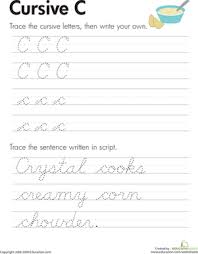 Cursive C
Trace the cursive letters, then write your own.
C C C
C C C
c c c
c c c
Trace the sentence written in script.
Crystal cooks
creamy corn
chowder.